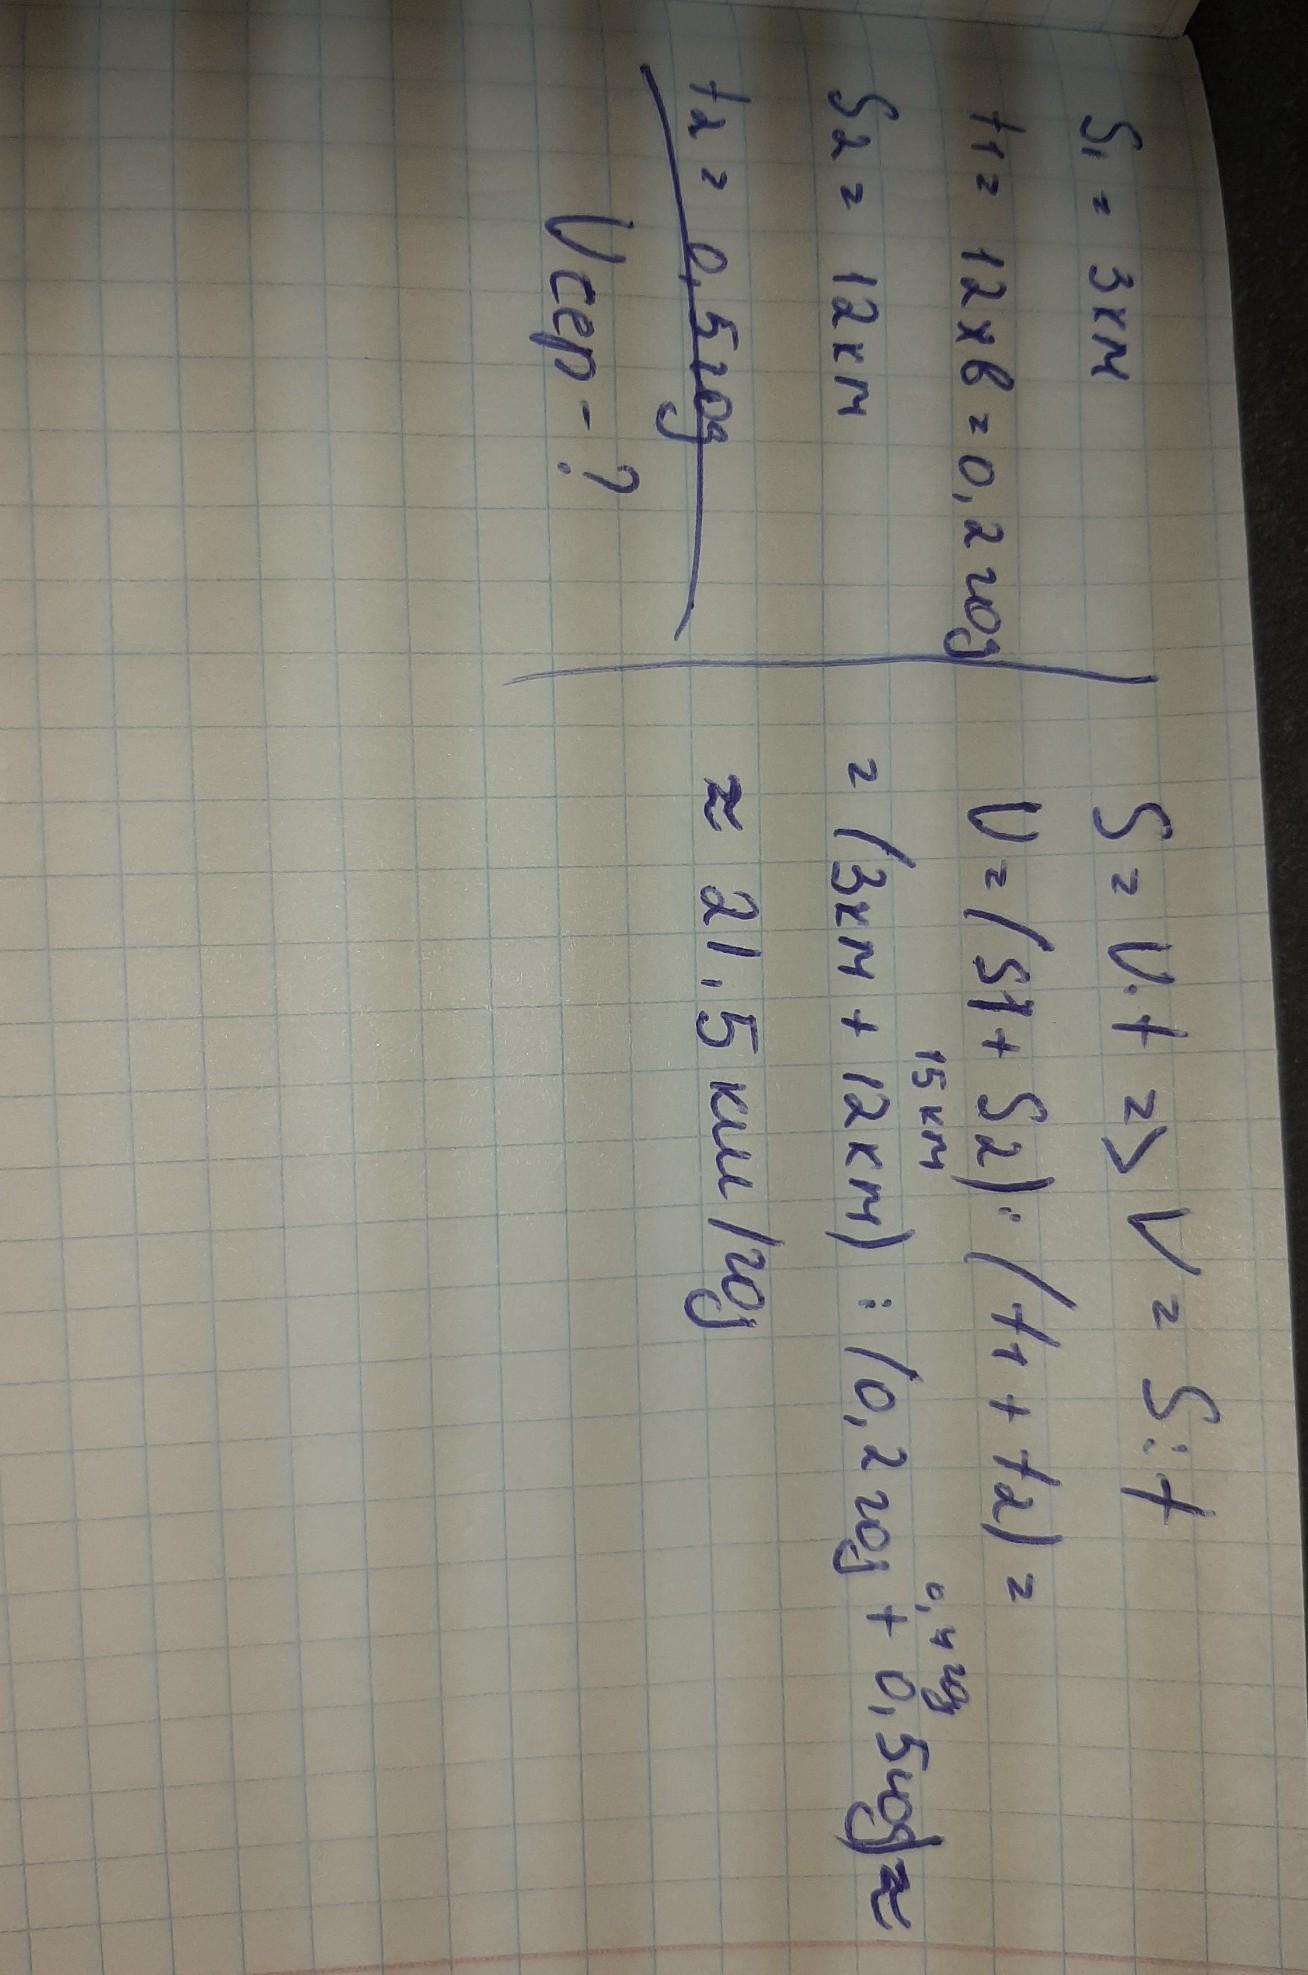 S₁ = 3км
t₁ = 12хв = 0,2год
S₂ = 12км
t₂ = 0,5год
Vсер - ?
S = V·t => V = S:t
V = (S1 + S2) : (t₁ + t₂) =
15км 0,7год
= (3км + 12км) : (0,2год + 0,5год) ≈
≈ 21,5 км/год